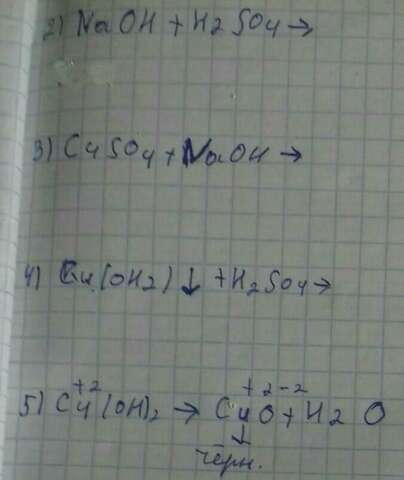 2) NaOH + H2SO4 →
3) CuSO4 + NaOH →
4) Cu(OH2)↓ + H2SO4 →
+2 +2-2
5) Cu(OH)2 → CuO + H2O
↓
черн.